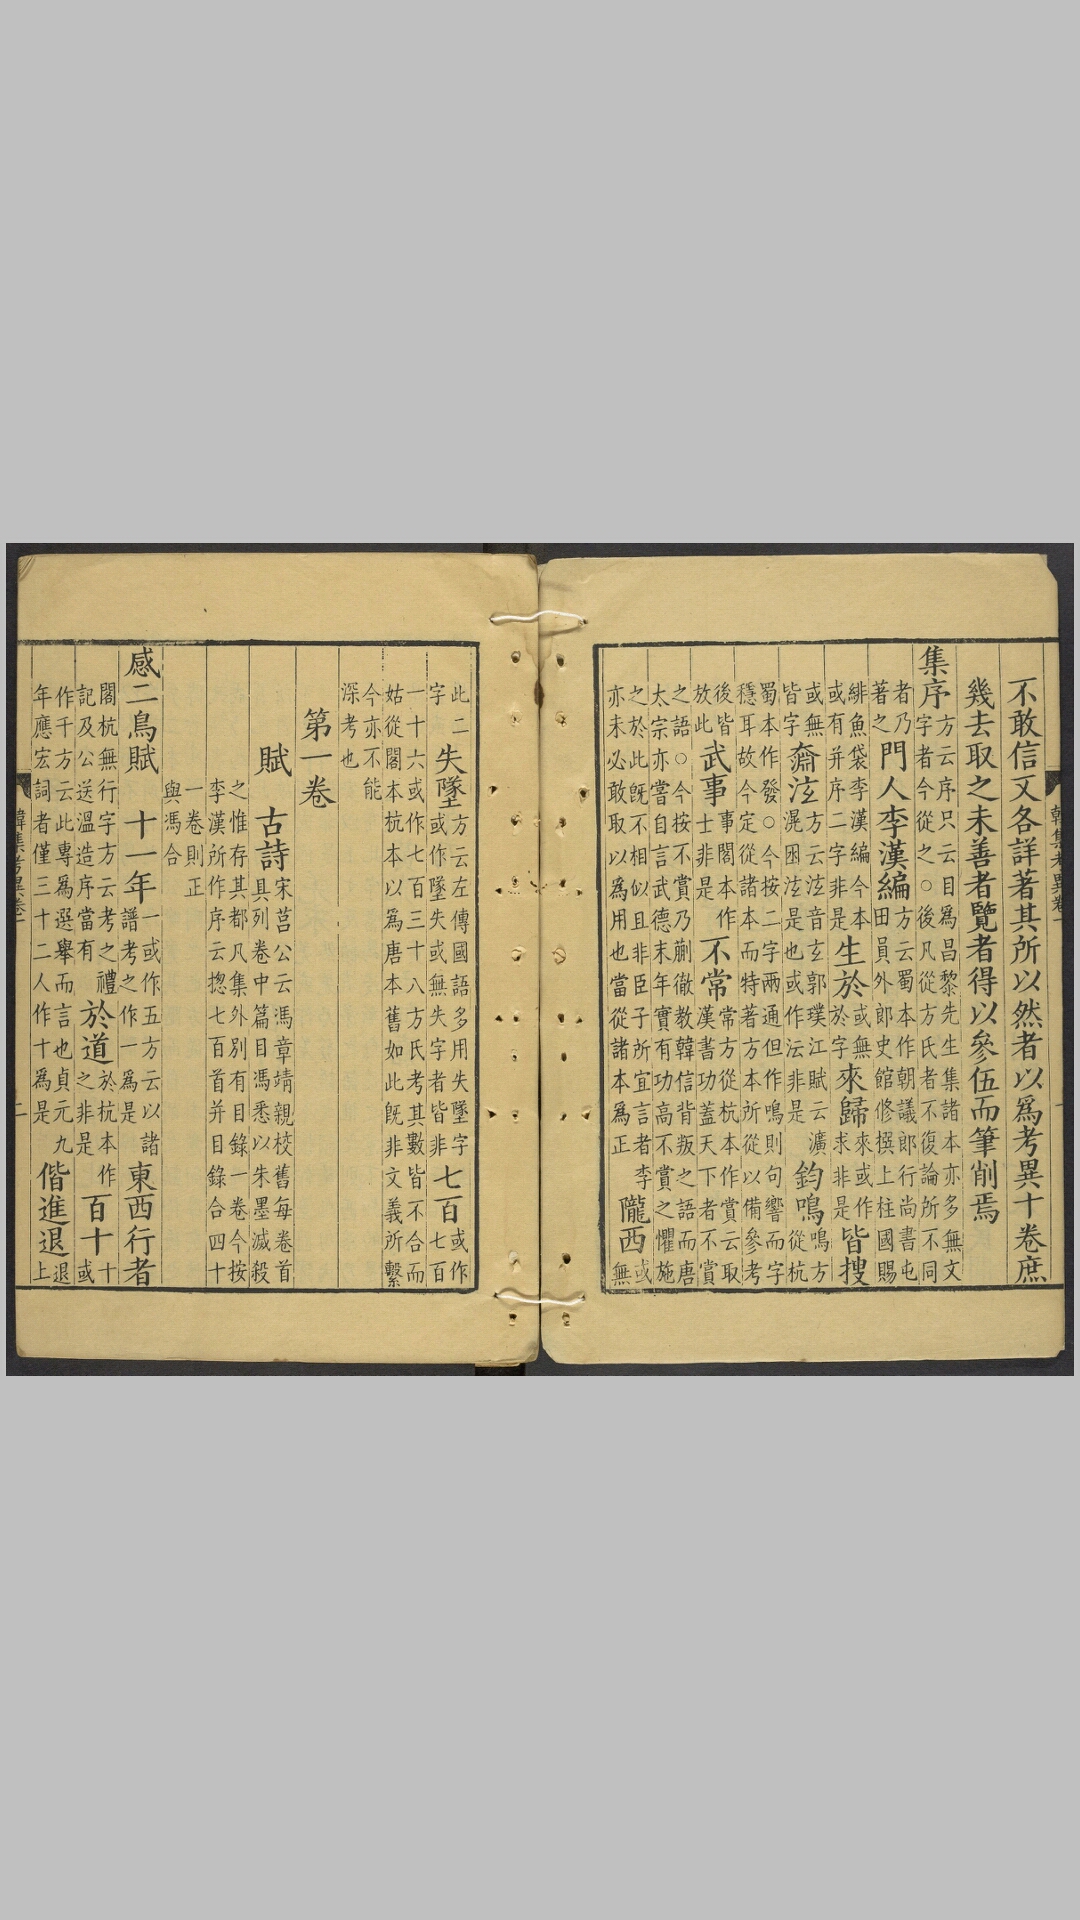 韓集考異卷一
不敢信又各詳著其所以然者以爲考異十卷庶
幾去取之未善者覽者得以參伍而筆削焉
集序方云序只云目爲昌黎先生集諸本亦多無文字者今從之○後凡從方氏者不復論所不同
者乃著之門人李漢編方云蜀本作朝議郎行尚書屯田員外郎史館修撰上柱國賜
緋魚袋李漢編今本或有并序二字非是生於或無於字來歸來或作求非是皆搜
或無皆字奫泫方云泫音玄郭璞江賦云瀇滉囦泫是也或作沄非是鈞鳴鳴方從杭
蜀本作發○今按二字兩通但作鳴則句響而字穩耳故今定從諸本而特著方本所從以備參考
後皆放此武事事閣本作士非是不常常方從杭本作賞云取漢書功蓋天下者不賞
之語○今按不賞乃蒯徹教韓信背叛之語而唐太宗亦嘗自言武德末年實有功高不賞之懼施
之於此既不相似且非臣子所宜言者李亦未必敢取以爲用也當從諸本爲正隴西或無
此二字失墜方云左傳國語多用失墜字或作墜失或無失字者皆非七百或作七百
一十六或作七百三十八方氏考其數皆不合而姑從閣本杭本以爲唐本舊如此既非文義所繫
今亦不能深考也
第一卷
賦 古詩宋莒公云馮章靖親校舊每卷首具列卷中篇目馮悉以朱墨滅殺
之惟存其都凡集外別有目錄一卷今按李漢所作序云揔七百首并目錄合四十
一卷則正與馮合
感二鳥賦 十一年一或作五方云以諸譜考之作一爲是東西行者
閣杭無行字方云考之禮記及公送溫造序當有於道於杭本作之非是百十十或
作千方云此專爲選舉而言也貞元九年應宏詞者僅三十二人作十爲是偕進退退上
韓集考異卷一
二